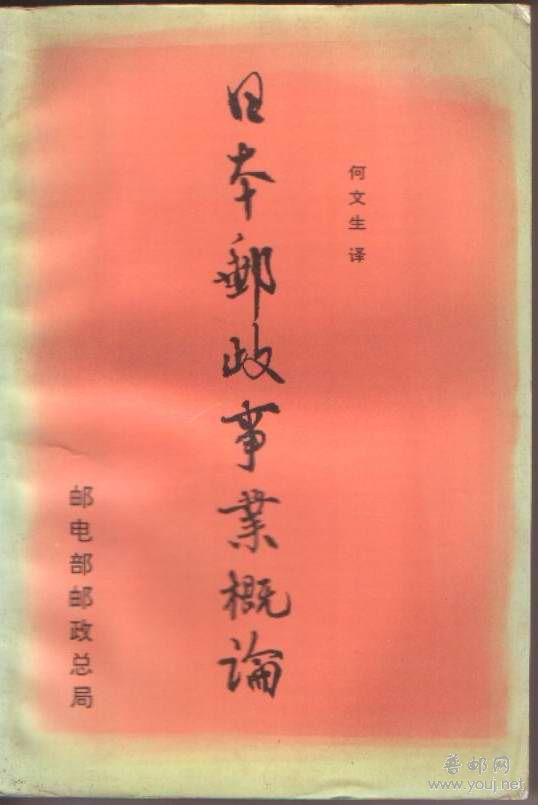 何文生 译
日本郵政事業概論
邮电部邮政总局
普邮网
www.youj.net